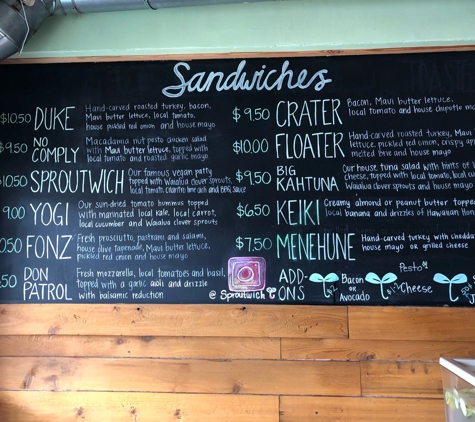 Sandwiches
$10.50 DUKE Hand-carved roasted turkey, bacon,
Maui butter lettuce, local tomato,
house pickled red onion and house mayo
$9.50 NO COMPLY Macadamia nut pesto chicken salad
with Maui butter lettuce, topped with
local tomato and roasted garlic mayo
10.50 SPROUTWICH Our famous vegan patty
topped with Waialua clover sprouts,
local tomato, and BBQ sauce
9.00 YOGI Our sun-dried tomato hummus topped
with marinated local kale, local carrot,
local cucumber and Waialua clover sprouts
0.50 FONZ Fresh prosciutto, pastrami and salami,
house olive tapenade, Maui butter lettuce,
pickled red onion and house mayo
.50 DON PATROL Fresh mozzarella, local tomatoes and basil,
topped with a garlic aioli and drizzle
with balsamic reduction
@ Sproutwich
$9.50 CRATER Bacon, Maui butter lettuce,
local tomato and house chipotle
$10.00 FLOATER Hand-carved roasted turkey, Maui
lettuce, pickled red onion, crispy
melted brie and house mayo
$9.50 BIG KAHTUNA Our house tuna salad with hints of
cheese, topped with local tomato, local
Waialua clover sprouts and house
$6.50 KEIKI Creamy almond or peanut butter topped
local banana and drizzles of Hawaiian
$7.50 MENEHUNE Hand-carved turkey with cheddar
house mayo or grilled cheese
ADD-ONS $2 Bacon or Avocado
Pesto
Cheese